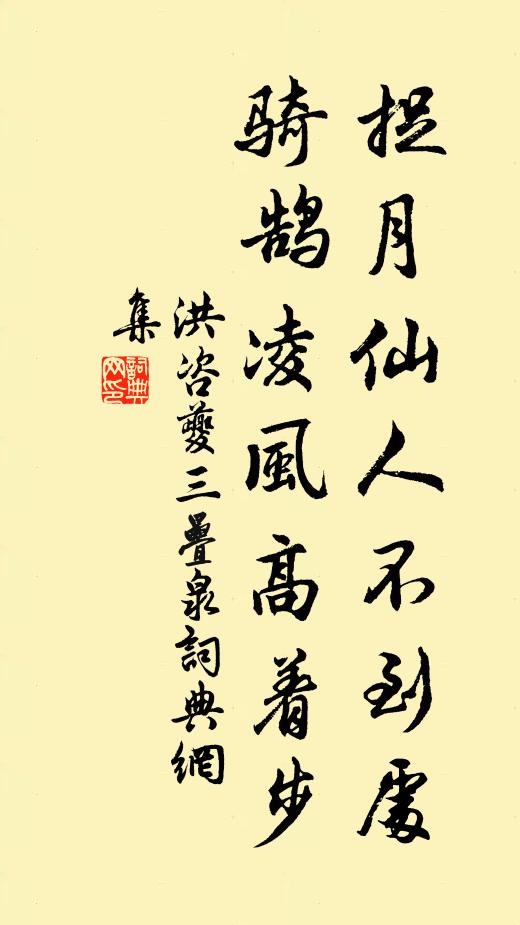 捉月仙人不到處
騎鵠凌風高着步
洪咨夔三疊泉詞典網
集
詞典網印